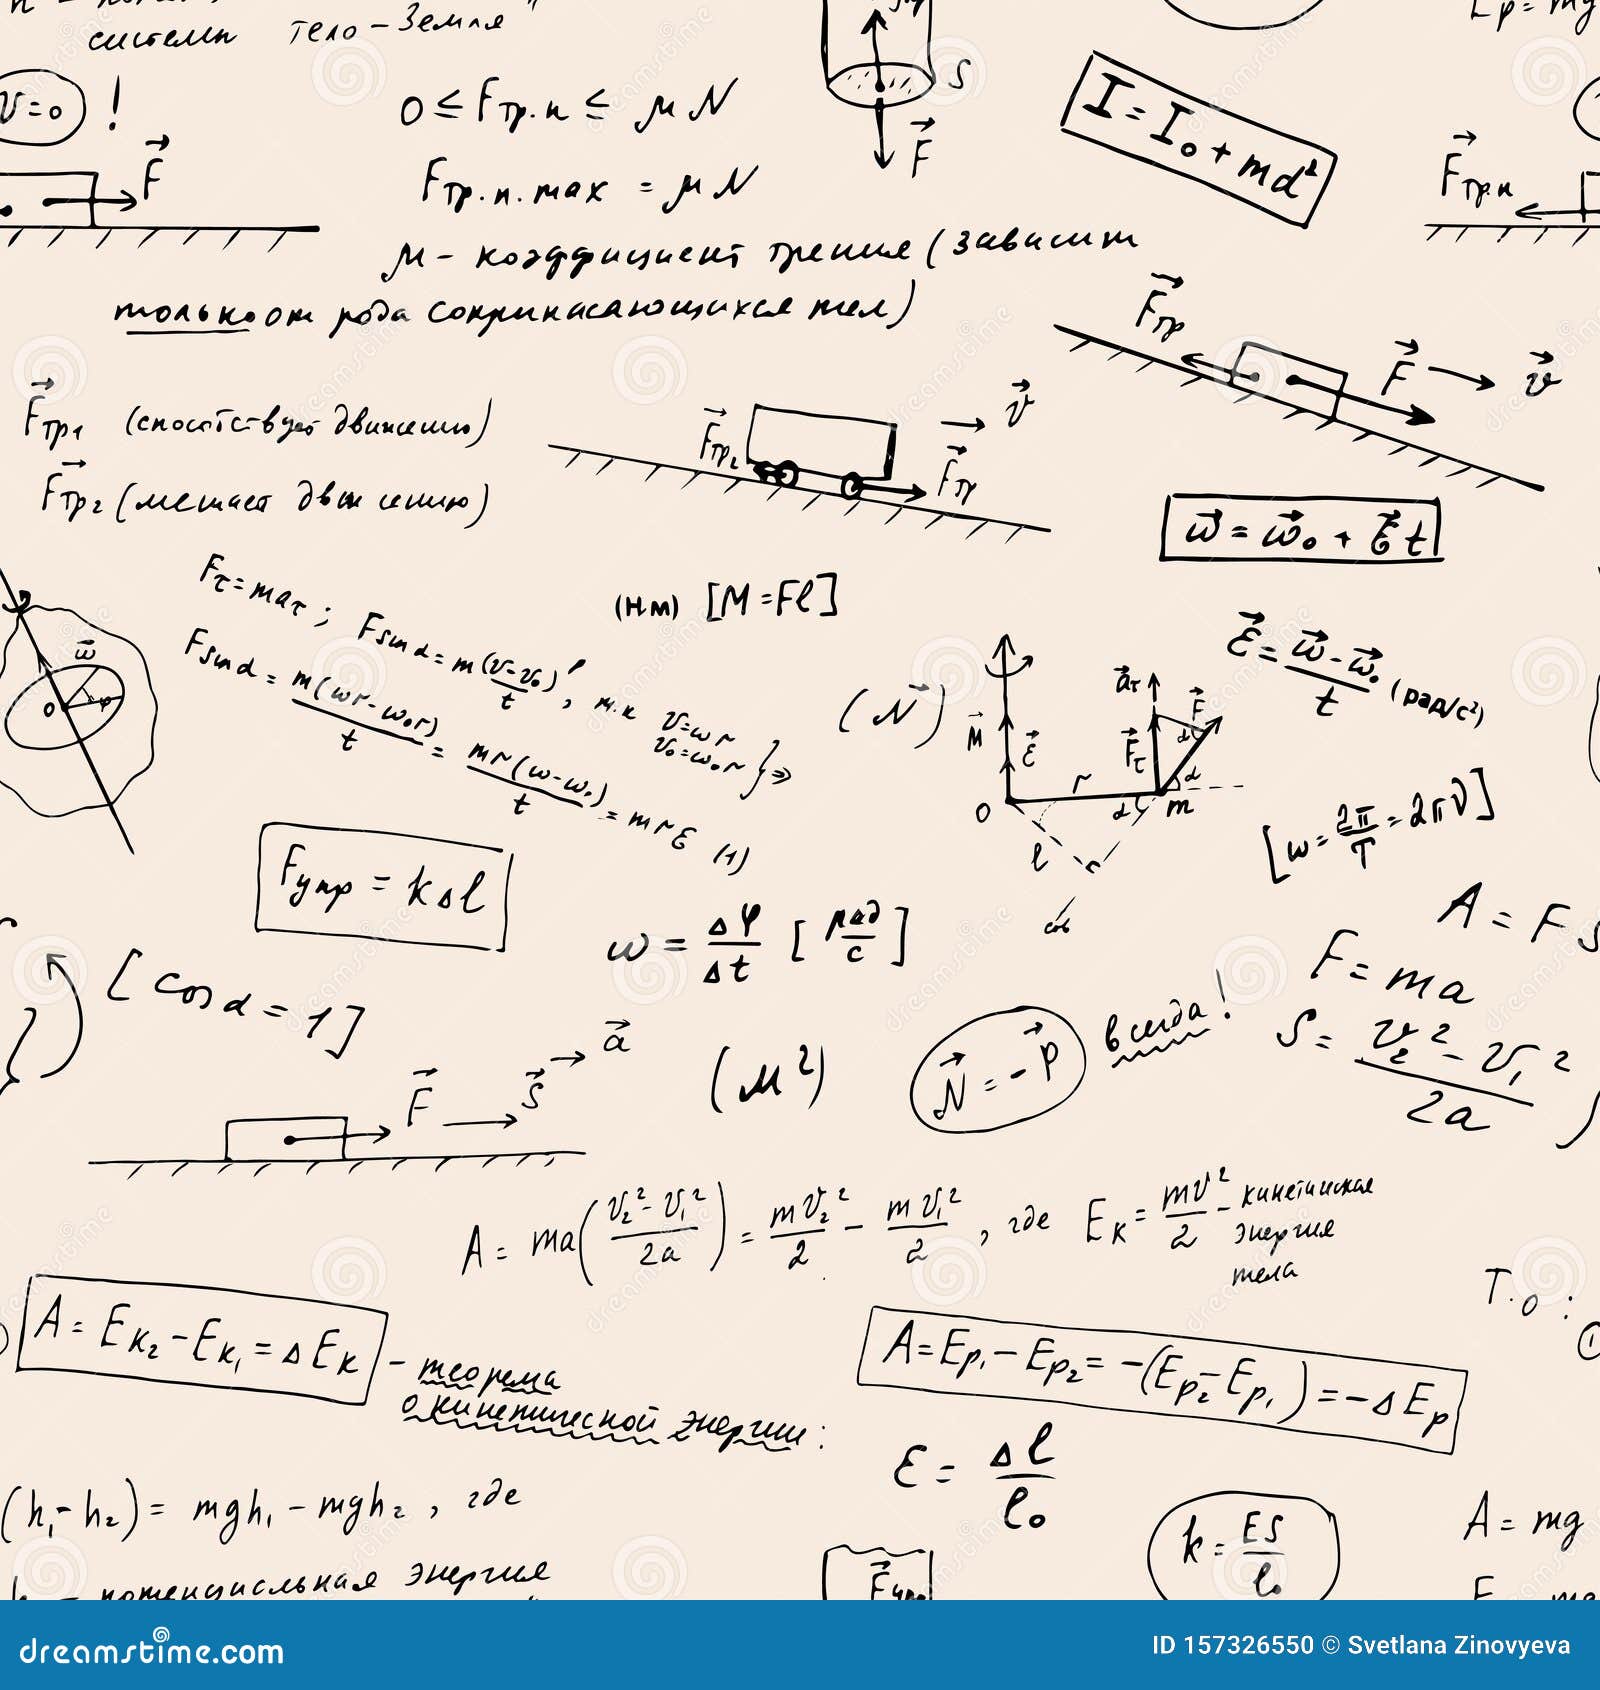 системы тело-Земля"
Eр = mg
v = 0 !
F
S
F
0 ≤ Fтр.п ≤ μN
Fтр.п.max = μN
I = I₀ + md²
Fтр.п
μ - коэффициент трения (зависит
только от рода соприкасающихся тел)
Fтр
F
v
Fтр1 (способствует движению)
Fтр2 (мешает движению)
Fтр2
v
Fтр
ω = ω₀ + εt
Fτ = maτ; F sin α = m(v-v₀)/t, т.к v = ωr
v₀ = ω₀r } ⇒
F sin α = m(ωr-ω₀r)/t = mr(ω-ω₀)/t = mrε (1)
(Нм) [M = Fl]
ε = (ω-ω₀)/t (рад/с²)
ω
0
φ
(N)
M
ε
aτ
F
Fτ
α
r
0
α
m
l
[ω = 2π/T = 2πν]
Fупр = kΔl
ω = Δφ/Δt [рад/с]
A = FS
F = ma
S = (v₂² - v₁²)/2a
[cos α = 1]
(м²)
N = -P всегда!
F
S
a
A = ma((v₂² - v₁²)/2a) = mv₂²/2 - mv₁²/2, где Eк = mv²/2 - кинетическая
энергия
тела
T.о:
1
A = Eк₂ - Eк₁ = ΔEк - теорема
о кинетической энергии:
A = Eр₁ - Eр₂ = -(Eр₂ - Eр₁) = -ΔEр
ε = Δl/l₀
(h₁-h₂) = mgh₁ - mgh₂, где
k = ES/l₀
A = mg
потенциальная энергия
Fупр
dreamstime.com
ID 157326550 © Svetlana Zinovyeva